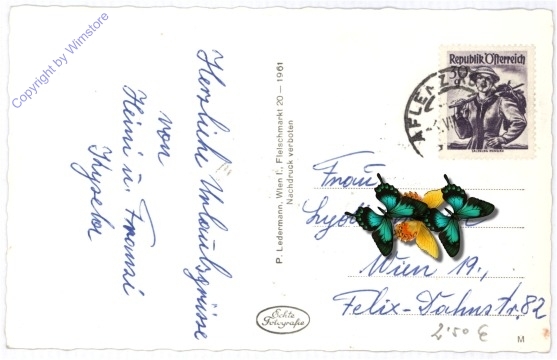 Copyright by Wimstore
Herzliche Urlaubsgrüsse
von
Heini u. Franzi
P. Ledermann, Wien I., Fleischmarkt 20 — 1961
Nachdruck verboten
Echte
Fotografie
Republik Österreich
AFLENZ
Frau
Wien 19.,
Felix-Dahnstr. 82
2'50 €
M